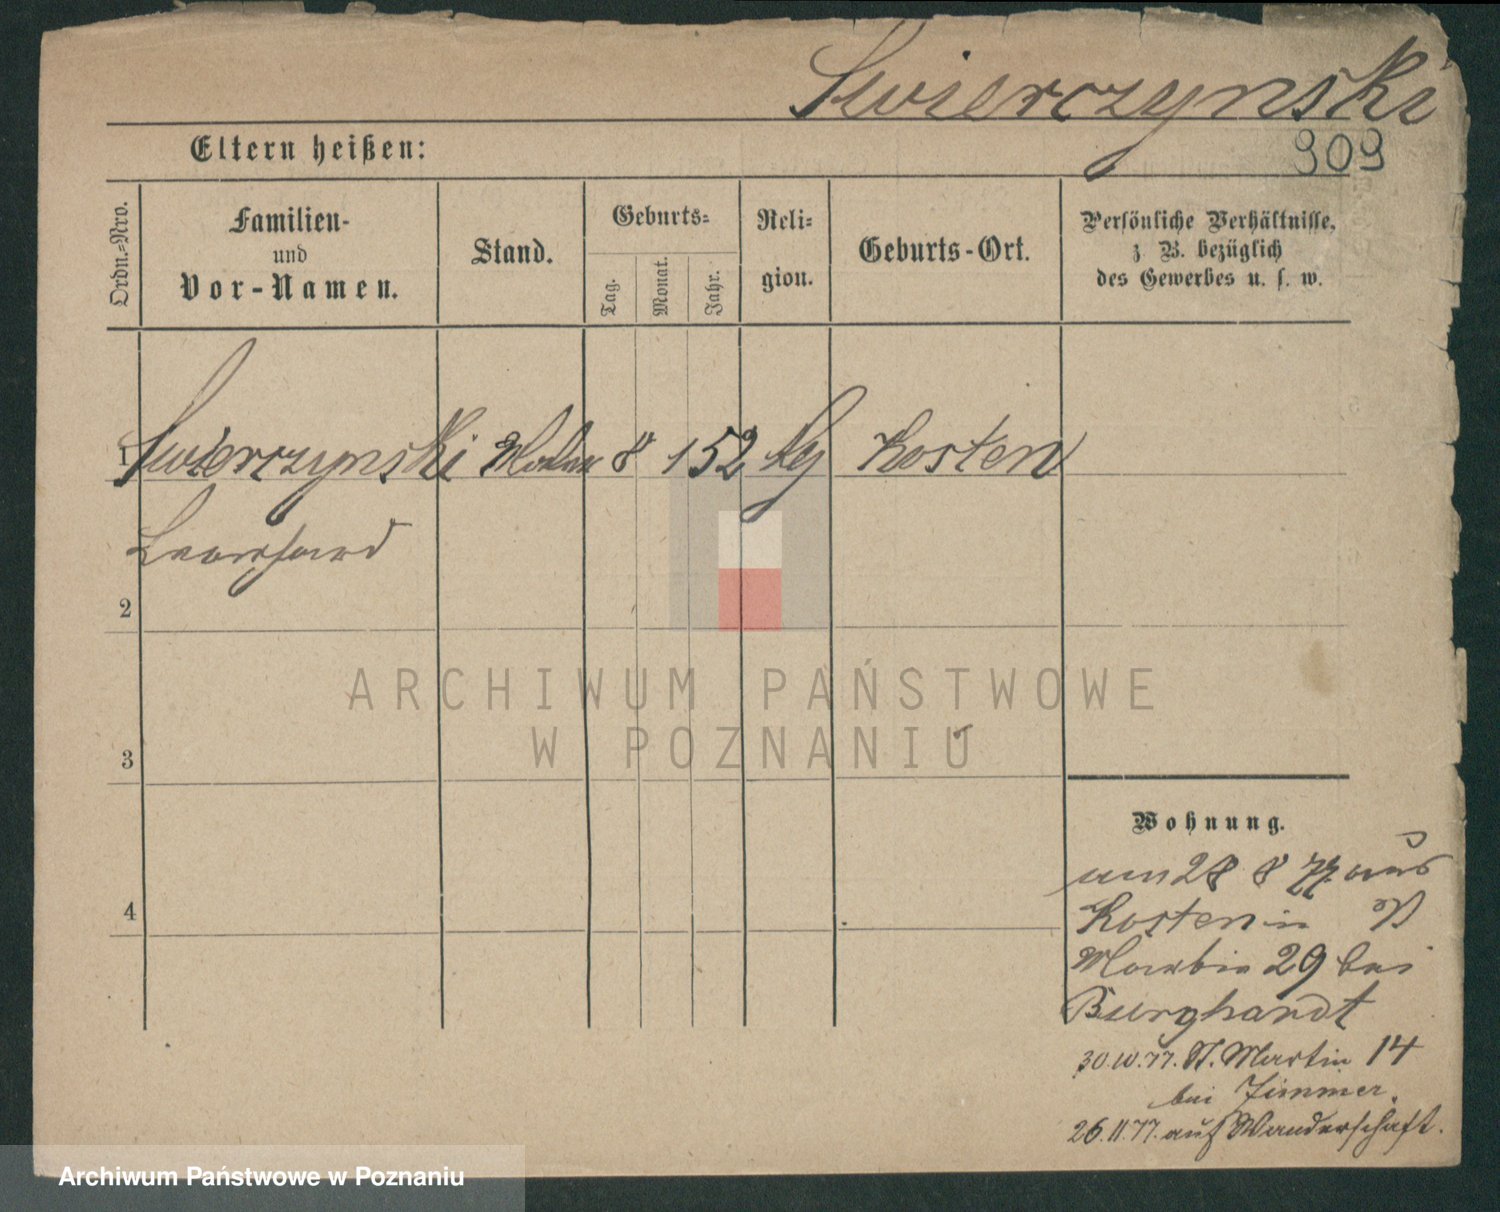 Swierczynski
909
Eltern heißen:
Ordn.-Nro.
Familien-
und
Vor-Namen.
Stand.
Geburts-
Tag.
Monat.
Jahr.
Reli-
gion.
Geburts-Ort.
Persönliche Verhältnisse,
z. B. bezüglich
des Gewerbes u. s. w.
1 Swierczynski 8 1 52 Kosten
Leonhard
2
3
4
ARCHIWUM PAŃSTWOWE
W POZNANIU
Wohnung.
am 28 8 77 aus
Kosten in
29 bei
Burghardt
30.10.77. St. Martin 14
bei Zimmer.
26.11.77. auf Wanderschaft.
Archiwum Państwowe w Poznaniu